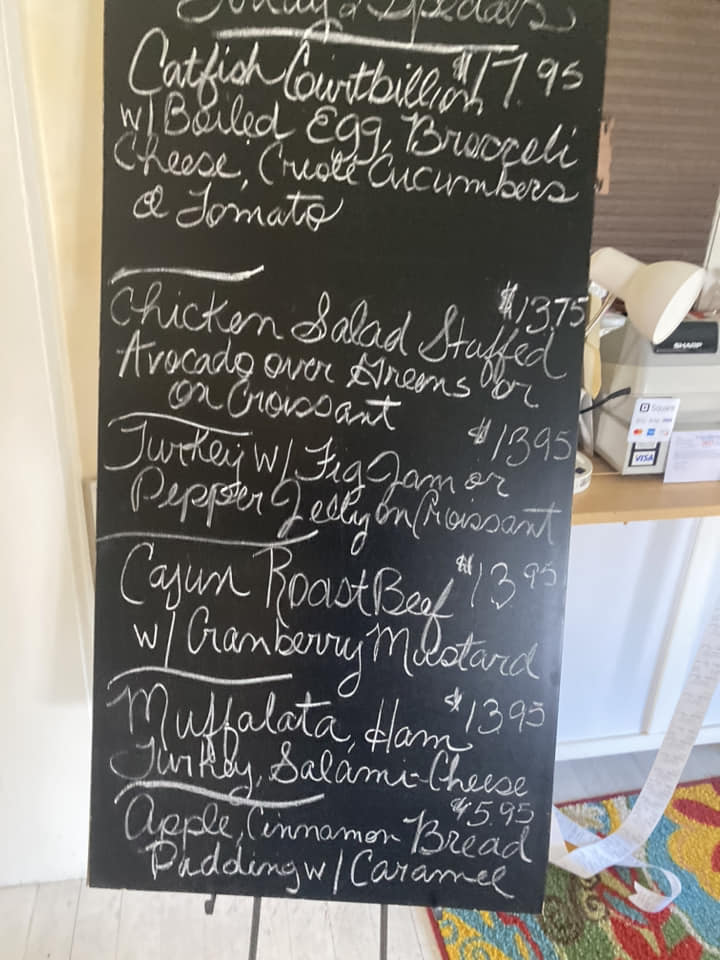 Today's Specials
Catfish Courtbillion $17.95
w/ Boiled Egg, Broccoli
Cheese, Creole Cucumbers
& Tomato
Chicken Salad Stuffed $13.75
Avocado over Greens or
on Croissant
Turkey w/ Fig Jam or $13.95
Pepper Jelly on Croissant
Cajun Roast Beef $13.95
w/ Cranberry Mustard
Muffalata, Ham $13.95
Turkey, Salami-Cheese
Apple, Cinnamon Bread $5.95
Pudding w/ Caramel
SHARP
Square
VISA